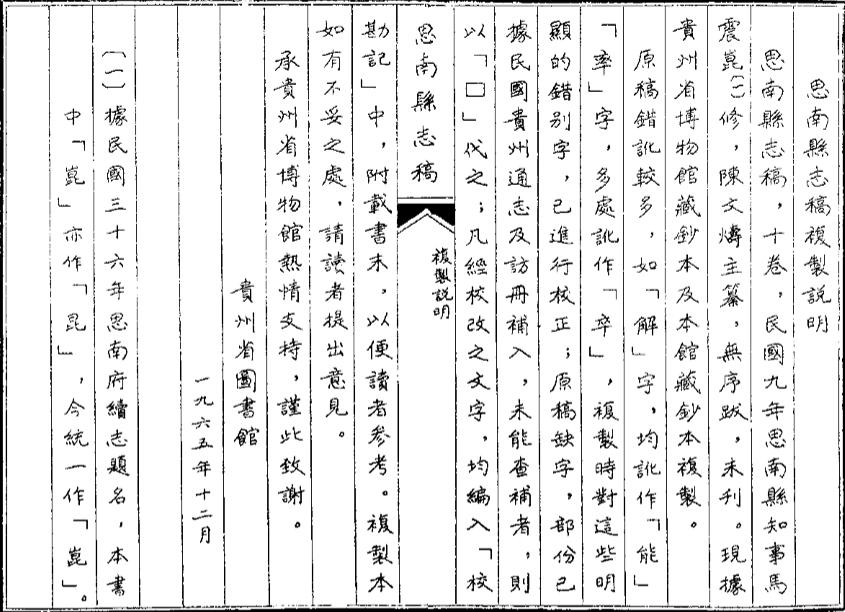 思南縣志稿複製説明
思南縣志稿，十卷，民國九年思南縣知事馬
震崑㈠修，陳文燽主纂，無序跋，未刋。現據
貴州省博物館藏鈔本及本館藏鈔本複製。
原稿錯訛較多，如「解」字，均訛作「能」
「率」字，多處訛作「卒」，複製時對這些明
顯的錯別字，已進行校正；原稿缺字，部份已
據民國貴州通志及訪冊補入，未能查補者，則
以「□」代之；凡經校改之文字，均編入「校
思南縣志稿
複製説明
勘記」中，附載書末，以便讀者參考。複製本
如有不妥之處，請讀者提出意見。
承貴州省博物館熱情支持，謹此致謝。
貴州省圖書館
一九六五年十二月
〔一〕據民國三十六年思南府續志題名，本書
中「崑」亦作「昆」，今統一作「崑」。